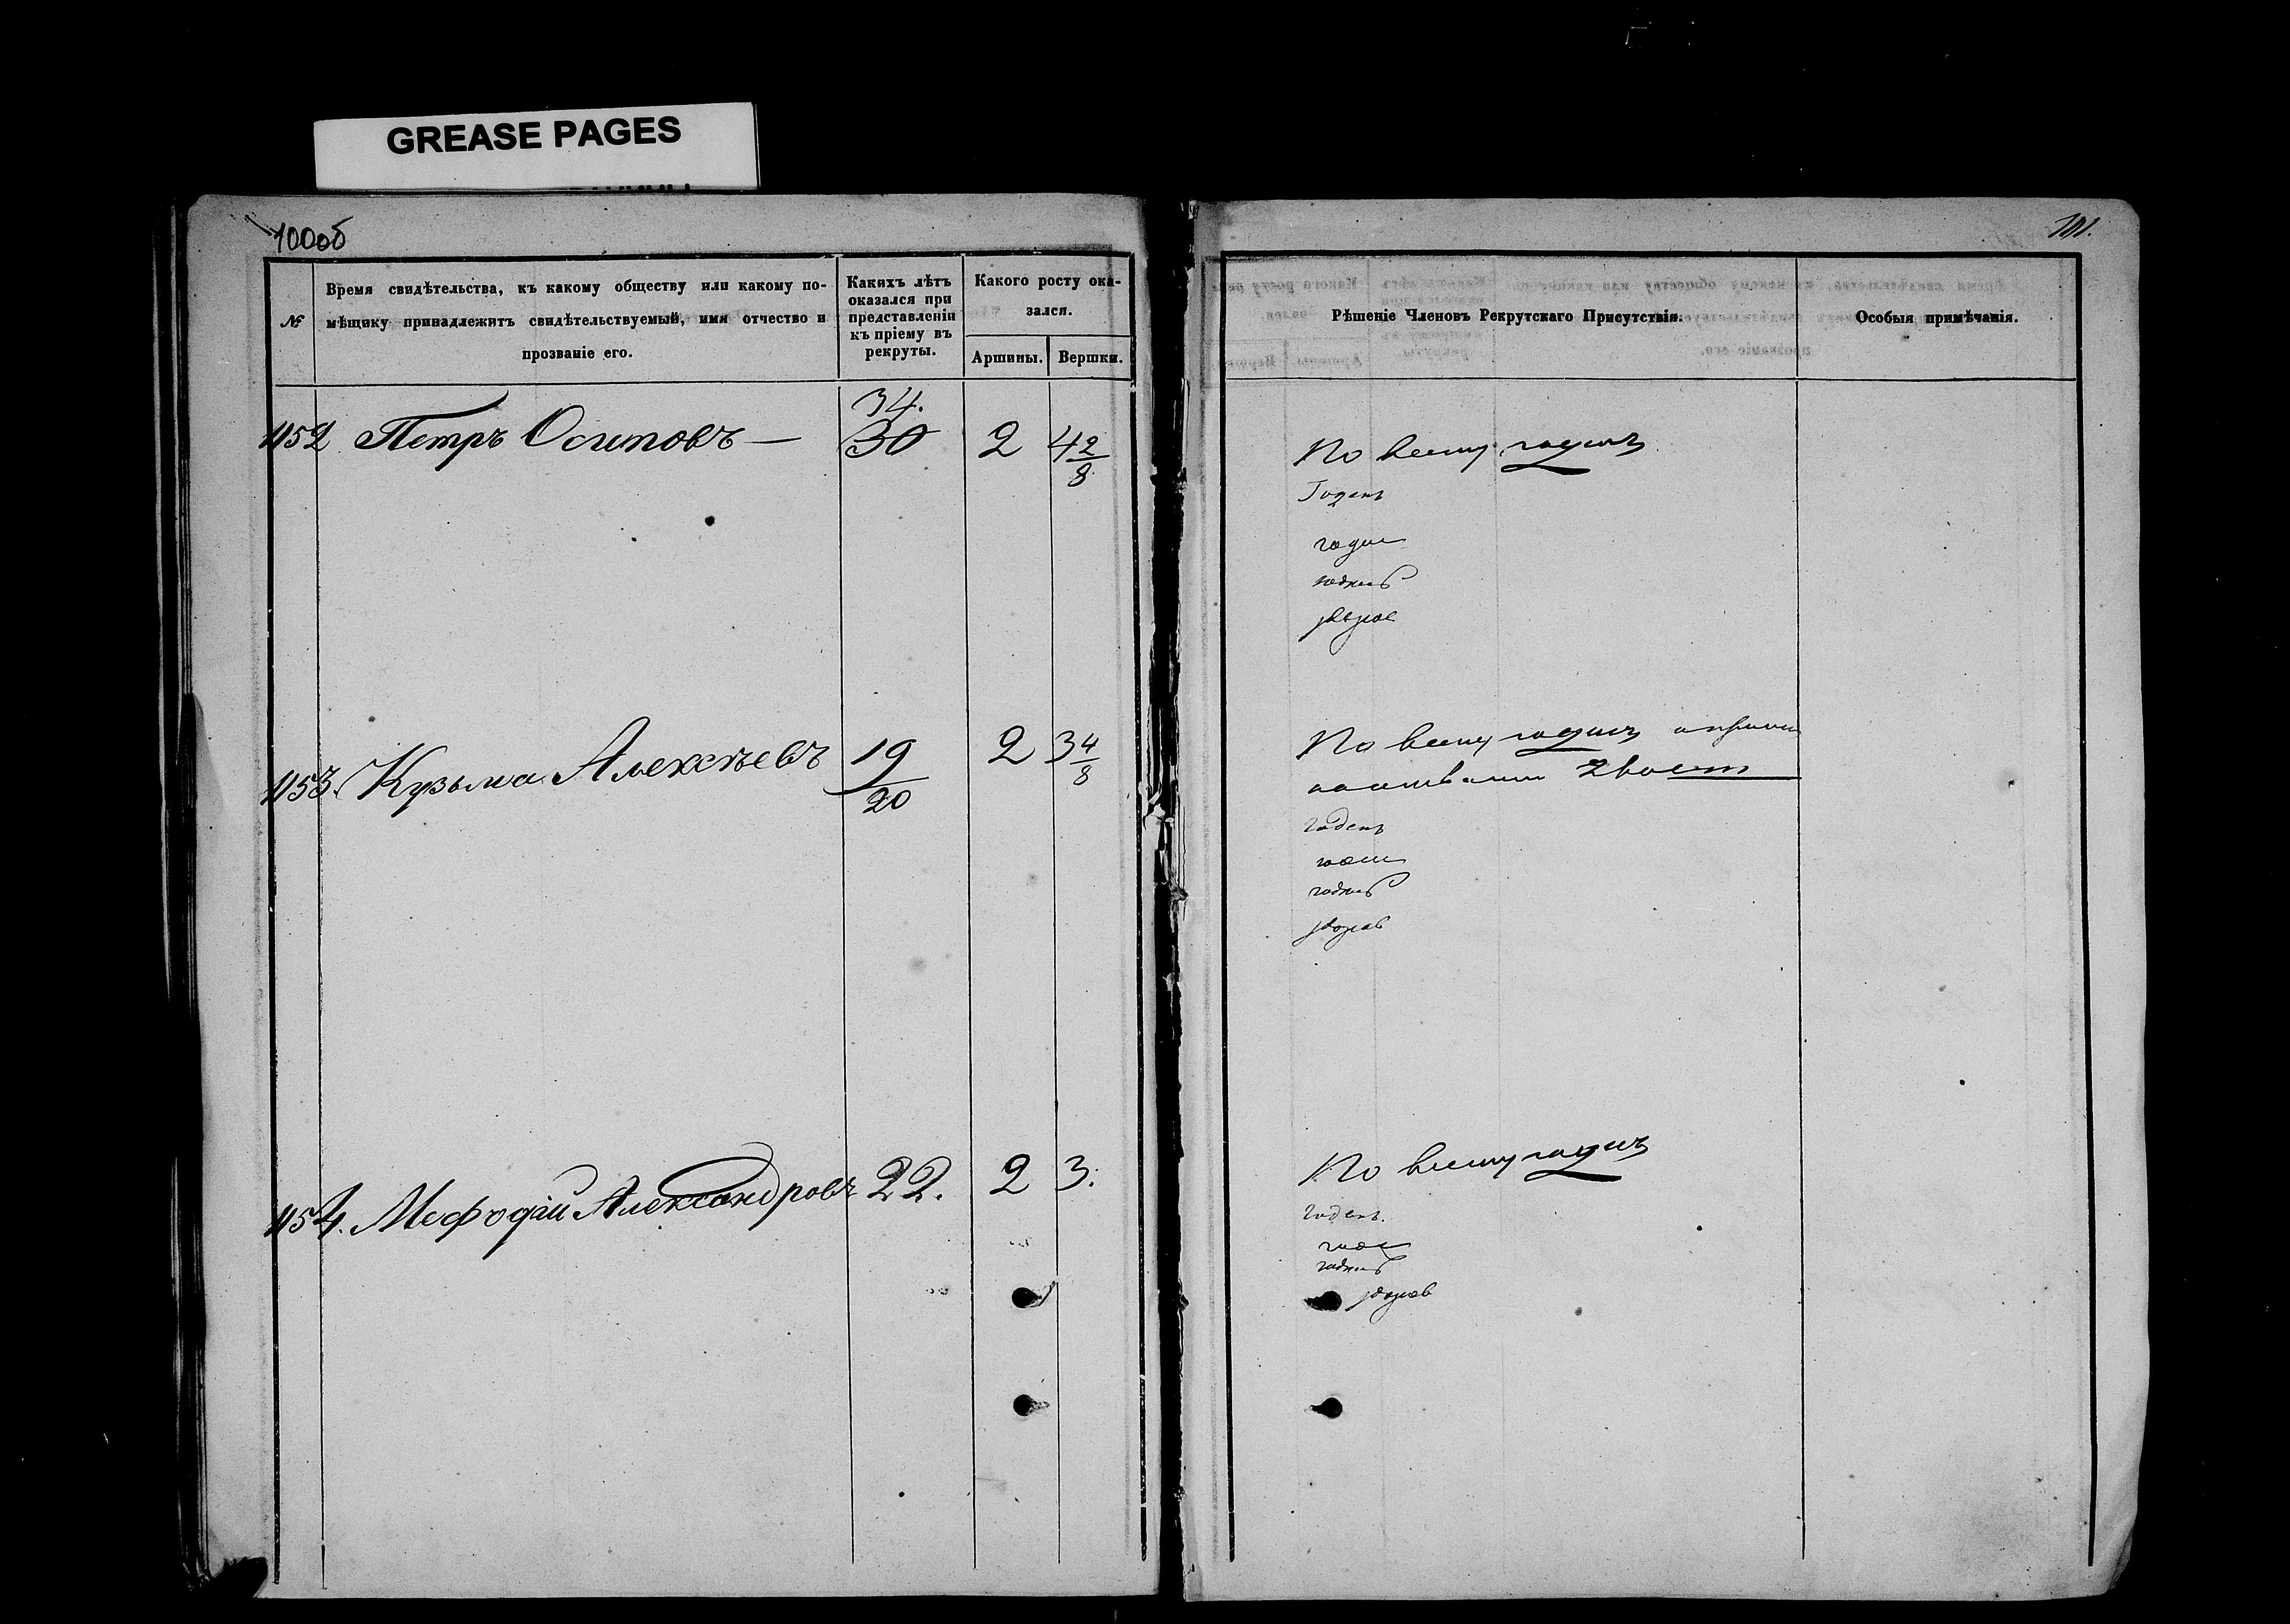 GREASE PAGES
100об
№
Время свидѣтельства, къ какому обществу или какому по-
мѣщику принадлежитъ свидѣтельствуемый, имя отчество и
прозваніе его.
Какихъ лѣтъ
оказался при
представленіи
къ пріему въ
рекруты.
Какого росту ока-
зался.
Аршины.
Вершки.
1152 Петръ Осиповъ —
34.
30
2
4 2/8
1153. Кузьма Алексѣевъ
19
20
2
3 4/8
1154. Мефодій Александровъ
22.
2
3.
101.
Рѣшеніе Членовъ Рекрутскаго Присутствія.
Особыя примѣчанія.
По всему годенъ
Годенъ
годен
годенъ
здоров
По всему годенъ
годенъ
годен
годенъ
здоров
По всему годенъ
годенъ.
годен
годенъ
здоров